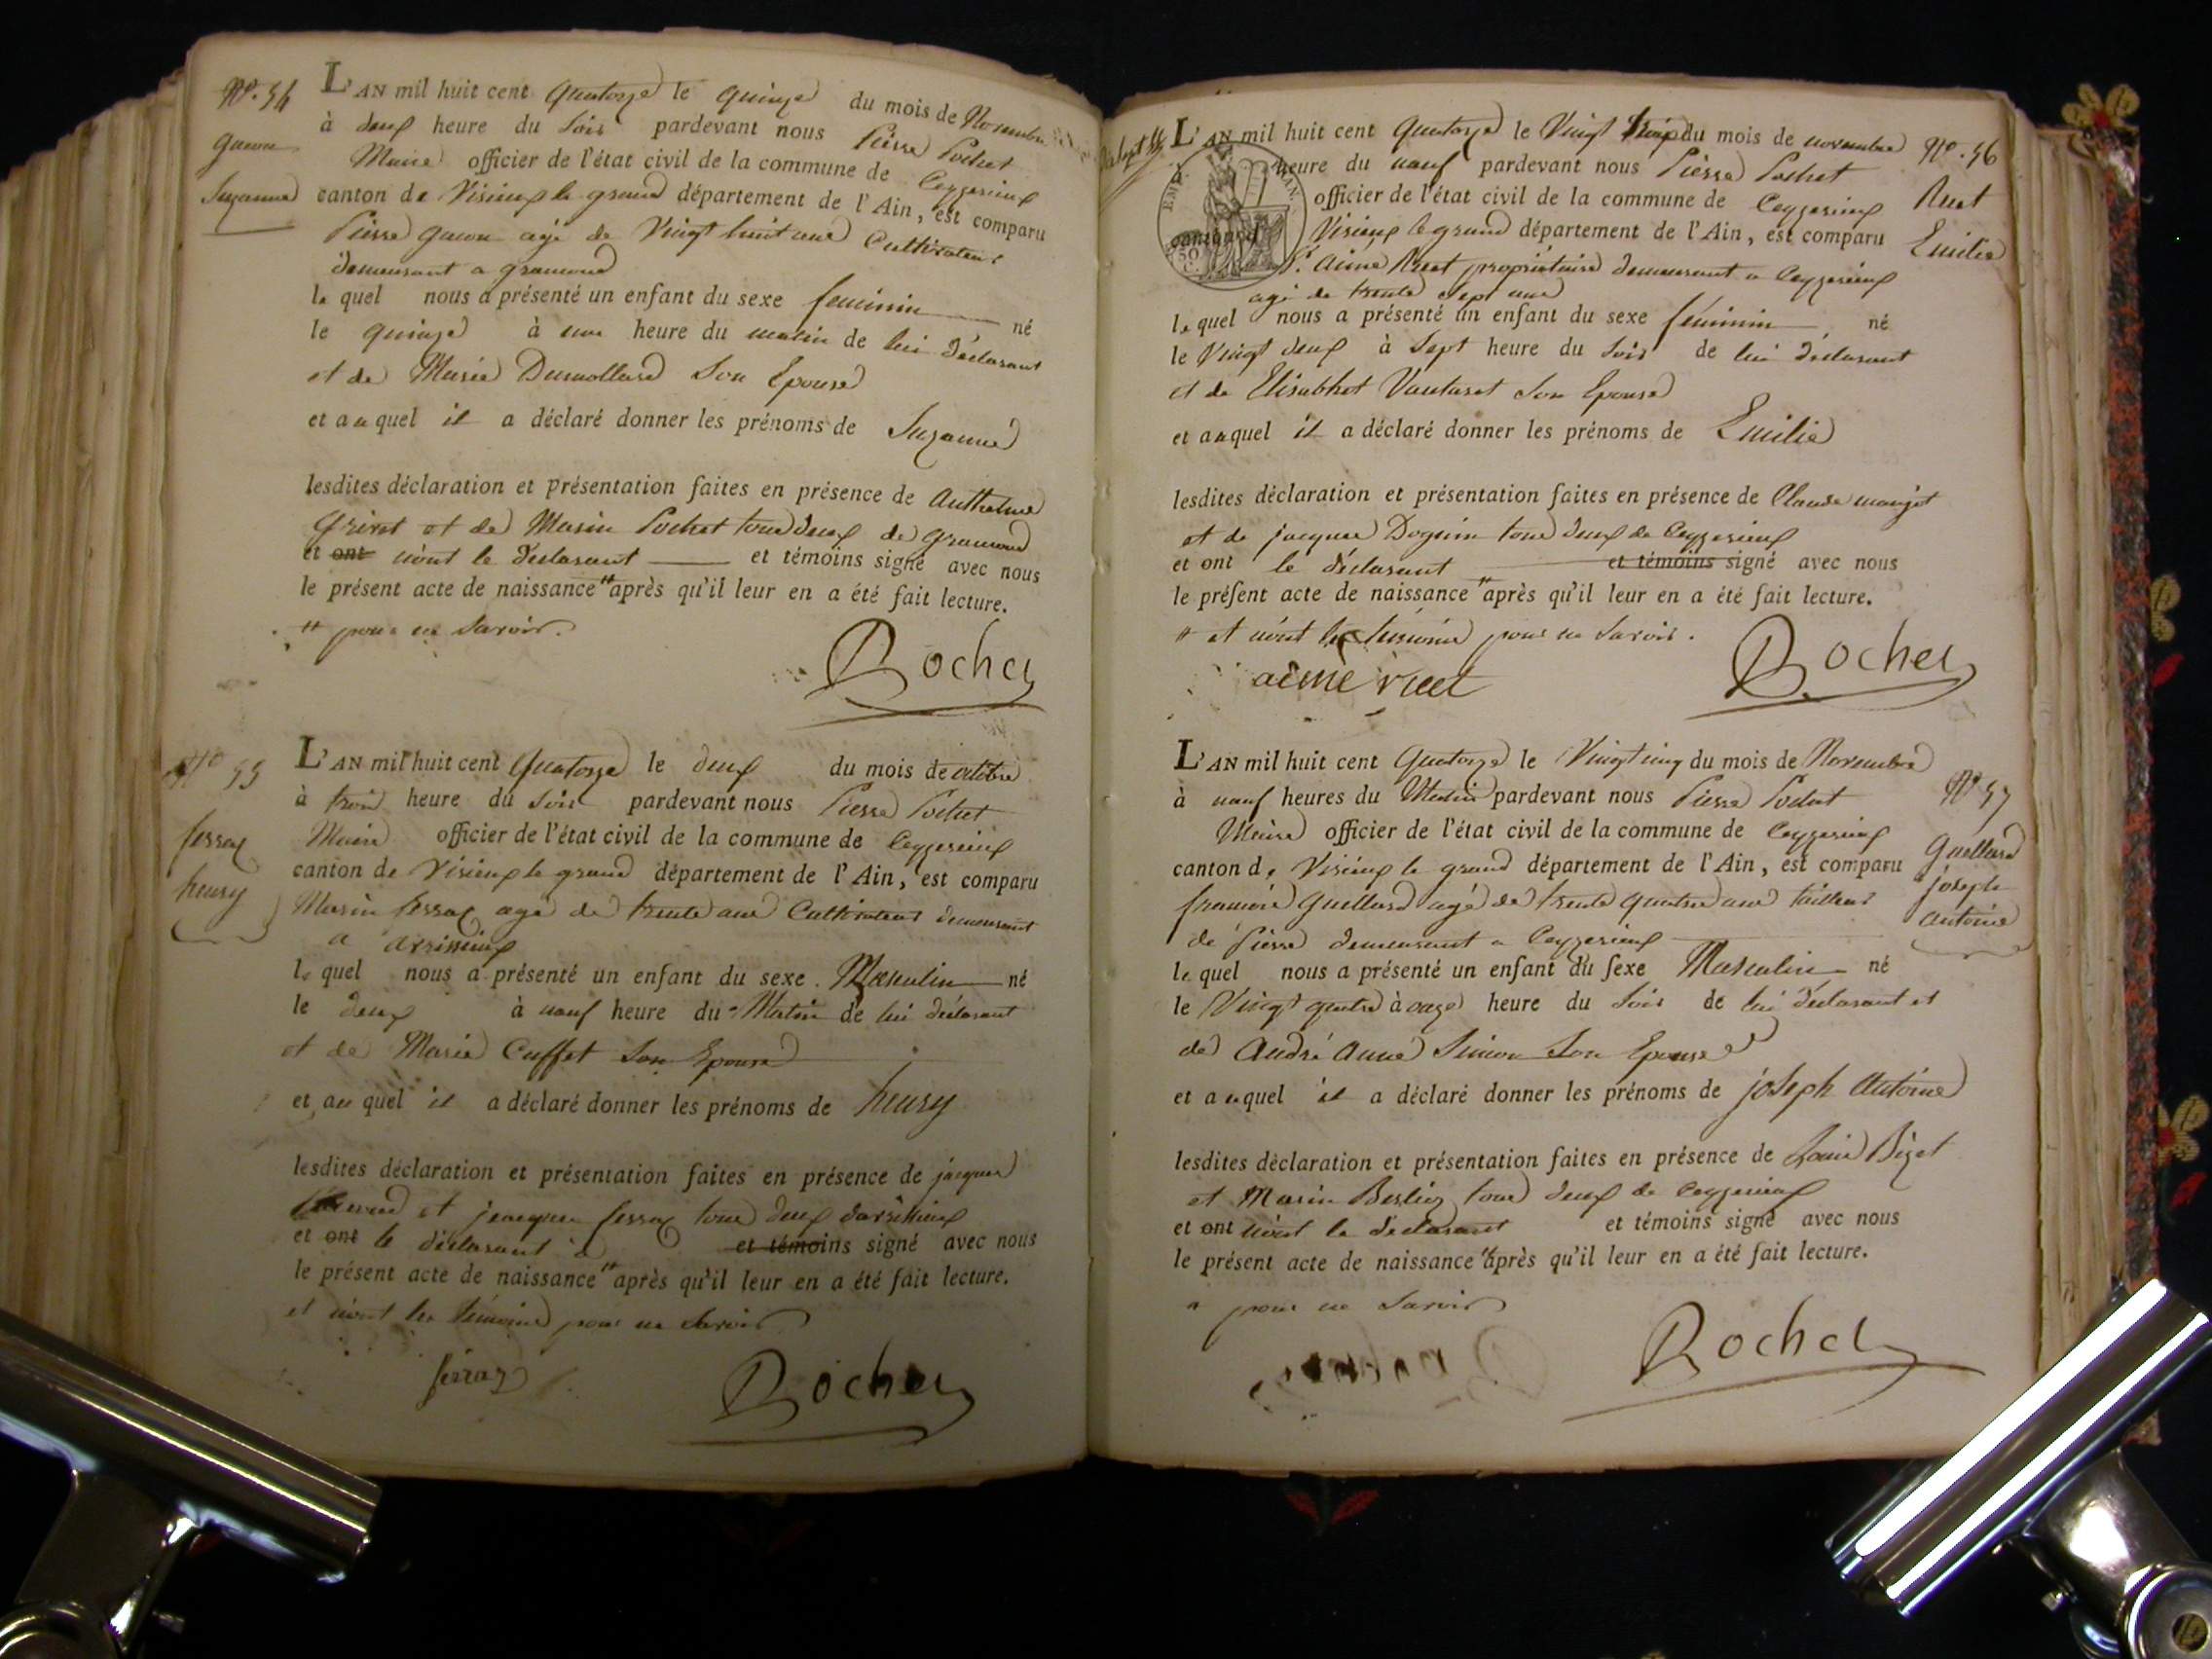 N°. 54
gucon
Suzanne
L'AN mil huit cent quatorze le quinze du mois de Novembre
à deux heure du Soir pardevant nous Pierre Pochet
Maire officier de l'état civil de la commune de Ceyzerieux
canton de Virieux le grand département de l'Ain, est comparu
Pierre gucon agé de Vingt huit ans Cultivateur
demeurant a gramond
le quel nous a présenté un enfant du sexe feminin né
le quinze à une heure du matin de lui déclarant
et de Marie Dumollard Son Epouse
et auquel il a déclaré donner les prénoms de Suzanne
lesdites déclaration et présentation faites en présence de Anthelme
Grivet et de Marin Pochet tous deux de gramond
et ont n'ont le déclarant et témoins signé avec nous
le présent acte de naissance " après qu'il leur en a été fait lecture.
" pour ne Savoir.
Pochet
N° 55
ferraz
henry
L'AN mil huit cent quatorze le deux du mois de octobre
à trois heure du Soir pardevant nous Pierre Pochet
Maire officier de l'état civil de la commune de Ceyzerieux
canton de Virieux le grand département de l'Ain, est comparu
Marin ferraz agé de trente ans Cultivateur demeurant
a avrissieux
le quel nous a présenté un enfant du sexe Masculin né
le deux à neuf heure du Matin de lui déclarant
et de Marie Cuffet Son Epouse
et au quel il a déclaré donner les prénoms de henry
lesdites déclaration et présentation faites en présence de jacques
et jacques ferraz tous deux d'avrissieux
et ont le déclarant a et témoins signé avec nous
le présent acte de naissance " après qu'il leur en a été fait lecture.
et n'ont les témoins pour ne Savoir
ferraz
Pochet
N°. 56
Ruet
Emilie
L'AN mil huit cent quatorze le Vingt trois du mois de novembre
à heure du neuf pardevant nous Pierre Pochet
officier de l'état civil de la commune de Ceyzerieux
canton d Virieux le grand département de l'Ain, est comparu
Sr. aimé Ruet propriétaire demeurant a Ceyzerieux
agé de trente Sept ans
le quel nous a présenté un enfant du sexe féminin né
le Vingt deux à Sept heure du Soir de lui déclarant
et de Elisabhet Vautaret Son Epouse
et auquel il a déclaré donner les prénoms de Emilie
lesdites déclaration et présentation faites en présence de Claude manjot
et de jacques Doguin tous deux de Ceyzerieux
et ont le déclarant et témoins signé avec nous
le présent acte de naissance " après qu'il leur en a été fait lecture.
" et n'ont les témoins pour ne Savoir.
aimé ruet
Pochet
N° 57
guellard
joseph
antoine
L'AN mil huit cent quatorze le Vingt cinq du mois de Novembre
à neuf heures du Matin pardevant nous Pierre Pochet
Maire officier de l'état civil de la commune de Ceyzerieux
canton de Virieux le grand département de l'Ain, est comparu
françois guellard agé de trente quatre ans tailleur
de Pierre demeurant a Ceyzerieux
le quel nous a présenté un enfant du sexe Masculin né
le Vingt quatre à onze heure du Soir de lui déclarant et
de André Anne Simon Son Epouse
et auquel il a déclaré donner les prénoms de joseph Antoine
lesdites déclaration et présentation faites en présence de Louis Bizet
et Marin Berlioz tous deux de Ceyzerieux
et ont n'ont le déclarant et témoins signé avec nous
le présent acte de naissance " après qu'il leur en a été fait lecture.
" pour ne Savoir
Pochet